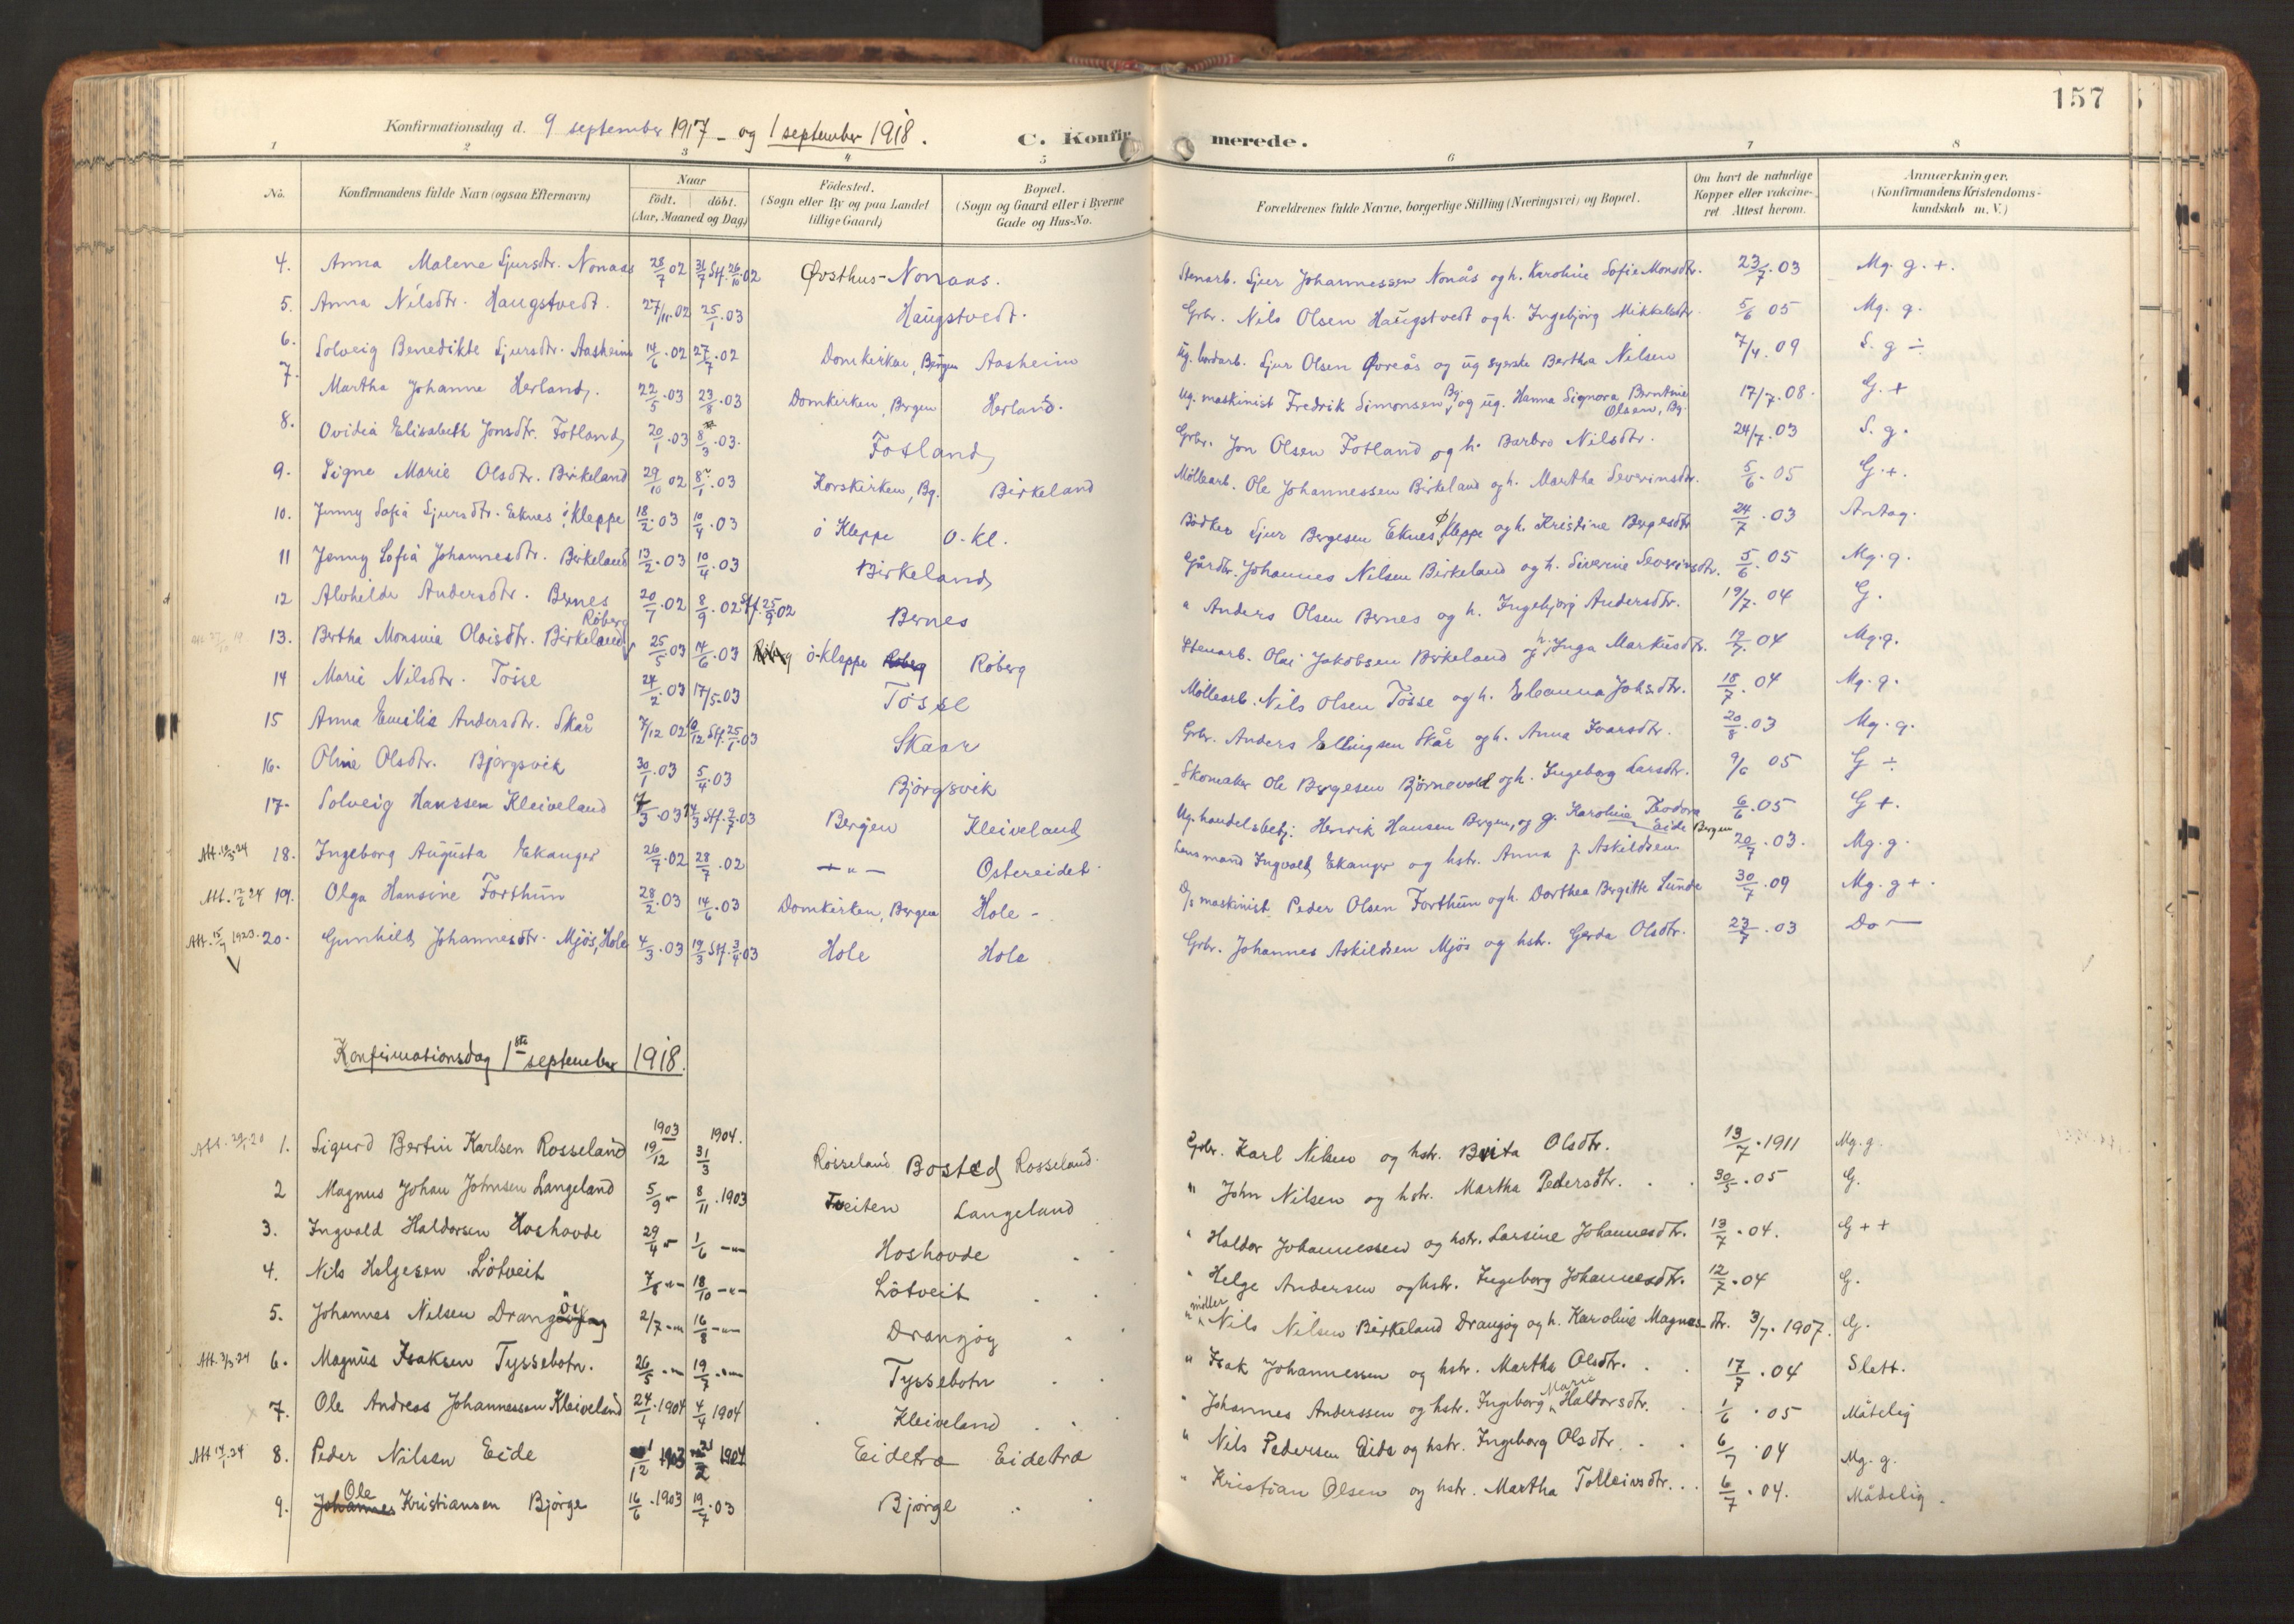 157
Konfirmationsdag d. 9 september 1917 - og 1 september 1918.
C. Konfirmerede.
1 2 3 4 5 6 7 8
No. Konfirmandens fulde Navn (ogsaa Efternavn) Naar født. døbt. (Aar, Maaned og Dag) Fødested. (Sogn eller By og paa Landet tillige Gaard) Bopæl. (Sogn og Gaard eller i Byerne Gade og Hus-No. Forældrenes fulde Navne, borgerlige Stilling (Næringsvei) og Bopæl. Om havt de naturlige Kopper eller vaccineret. Attest herom. Anmærkninger. (Konfirmandens Kristendomskundskab m. V.)
4. Anna Malene Sjursdtr. Nonaas 28/7 02 31/7 Stf. 26/10 02 Øvsthus-Nonaas. Stenarb. Sjur Johannessen Nonås og h. Karoline Sofie Monsdtr. 23/7.03 Mg. g. +.
5. Anna Nilsdtr. Haugstvedt. 27/11.02 25/1.03 Haugstvedt. Grbr. Nils Olsen Haugstvedt og h. Ingebjørg Mikkelsdtr. 5/6 05 Mg. g.
6. Solveig Benedikte Sjursdtr. Aasheim 14/6.02 27/7.02 Domkirken, Bergen Aasheim Ug. bordarb. Sjur Olsen Øvreås og ug syerske Bertha Nilsen 7/4.09 S. g ÷
7. Martha Johanne Herland. 22/5.03 23/8.03 Domkirken, Bergen Herland. Ug. maskinist Fredrik Simonsen, Bg. og ug. Hanna Signora Berntine Olsen, Bg. 17/7.08. G. +
8. Ovidia Elisabeth Jonsdtr. Fotland 20/1.03 8/3.03. Fotland Grbr. Jon Olsen Fotland og h. Barbro Nilsdtr. 24/7.03 S. g.
9. Signe Marie Olsdtr. Birkeland 29/10 02 8/1.03 Korskirken, Bg. Birkeland Møllearb. Ole Johannessen Birkeland og h. Martha Severinsdtr. 5/6.05 G. +.
10. Jenny Sofia Sjursdtr. Eknes, i Kleppe 18/2.03 10/4.03 ö Kleppe O. Kl. Bødker Sjur Bergesen Eknes, ø Kleppe og h. Kristine Bergesdtr 24/7.03 Antag.
11 Jenny Sofia Johannesdtr. Birkeland 13/2.03 10/4.03 Birkeland Gårdbr. Johannes Nilsen Birkeland og h. Siverine Severinsdtr. 5/6.05 Mg. g.
12 Alvhilde Andersdtr. Bernes 20/7.02 8/9.02 Stf. 25/9 02 Bernes " Anders Olsen Bernes og h. Ingebjørg Andersdtr. 19/7.04 G.
13. Bertha Monsine Olaisdtr. Birkeland Røberg 25/5.03 14/6.03 ö-Kleppe Røberg Stenarb. Olai Jakobsen Birkeland og h. Inga Markusdtr. 19/7.04 Mg. g.
14 Marie Nilsdtr. Tösse 24/2.03 17/5.03 Tösse Møllearb. Nils Olsen Tösse og h. Eleanna Johsdtr. 18/7.04 Mg. g.
15 Anna Emilie Andersdtr. Skår 7/12 02 10/12 Stf. 25/1.03 Skaar Grbr. Anders Ellingsen Skår og h. Anna Ivarsdtr. 20/8.03 Mg. g.
16. Oline Olsdtr. Bjørgsvik 30/1.03 5/4.03 Bjørgsvik Skomaker Ole Bergesen Bjørnevold og h. Ingeborg Larsdtr. 9/6 05 G ÷
17. Solveig Hanssen Kleiveland 7/3.03 14/3 Stf. 9/7.03 Bergen Kleiveland Ug. handelsbetj. Henrik Hansen Bergen, og g. Karoline Teodora Eide Bergen 6/6.05 G +.
Att. 24 18. Ingeborg Augusta Ekanger 26/7.02 28/7.02 — " — Ostereidet. Lensmand Ingvald Ekanger og hstr. Anna f. Askildsen 20/7.03. Mg. g.
Att. 12/6 24 19. Olga Hansine Forthun 28/2.03 14/6.03 Domkirken, Bergen Hole - D/s maskinist Peder Olsen Forthun og h. Dorthea Bergitte Lunde 30/7.09 Mg. g +.
Att. 15/7 1923. 20. Gunhild Johannesdtr. Mjös, Hole 4/3.03 19/3 Stf. 3/4.03 Hole Hole Grbr. Johannes Askildsen Mjös og hstr. Gerda Olsdtr. 23/7.03 Do —
Konfirmationsdag 1ste september 1918.
Att. 20 1. Sigurd Bertin Karlsen Rosseland 1903 19/12 1904. 31/3 Rosseland Bosted Rosseland. Grbr. Karl Nilsen og hstr. Brita Olsdtr. 13/7.1911 Mg. g.
2 Magnus Johan Johnsen Langeland 5/9 " 8/11.1903 Tveiten Langeland " John Nilsen og hstr. Martha Pedersdtr. 30/5.05 G.
3. Ingvald Haldorsen Hoshovde 29/4 " 1/6 —"— Hoshovde " Haldor Johannessen og hstr. Larsine Johannesdtr. 13/7.04. G + +
4. Nils Helgesen Lötveit 7/8 "— 18/10 —"— Lötveit " Helge Andersen og hstr. Ingeborg Johannesdtr. 12/7.04 G.
5. Johannes Nilsen Drangöy 2/7 —"— 16/8 —"— Drangöy " møller Nils Nilsen Birkeland Drangöy og h. Karoline Magnesdtr. 3/7.1907. G.
Att. 3/3 24 6. Magnus Isaksen Tyssebotn. 26/5 —"— 19/7 —"— Tyssebotn " Isak Johannessen og hstr. Martha Olsdtr. 17/7.04 Slett.
7. Ole Andreas Johannessen Kleiveland 24/1.1904 4/4 1904 Kleiveland " Johannes Anderssen og hstr. Ingeborg Marie Haldorsdtr. 1/6.05 Måtelig
Att 14/1 24 8. Peder Nilsen Eide 1/12 1903 21/2 1904 Eidetræ Eidetræ " Nils Pedersen Eide og hstr. Ingeborg Olsdtr. 6/7.04 Mg. g.
9. Johannes Ole Kristiansen Bjørge 16/6.1903 19/7.03 Bjørge " Kristian Olsen og hstr. Martha Tolleivsdtr. 6/7.04. Mådelig.